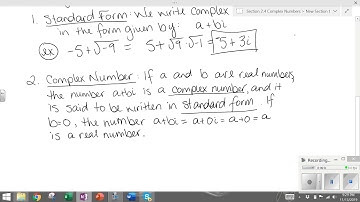 Section 2.4 Complex Numbers > New Section 1
1. Standard Form: We write complex
in the form given by: a+bi
ex) -5+√-9 = 5+√9·√-1 = -5+3i
2. Complex Number: If a and b are real numbers,
the number a+bi is a complex number, and it
is said to be written in standard form. If
b=0, the number a+bi = a+0i = a+0 = a
is a real number.
Recording...
11/13/2019